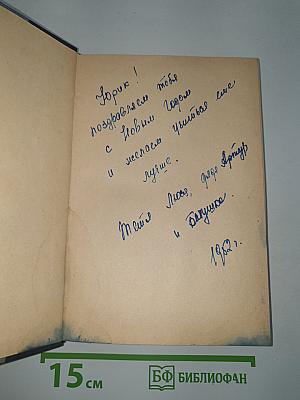 Юрик!
поздравляем тебя
с Новым Годом
и желаем учиться еще
лучше.
Тётя Люся, дядя Артур
и бабушка
1962 г.
15 см
БФ БИБЛИОФАН